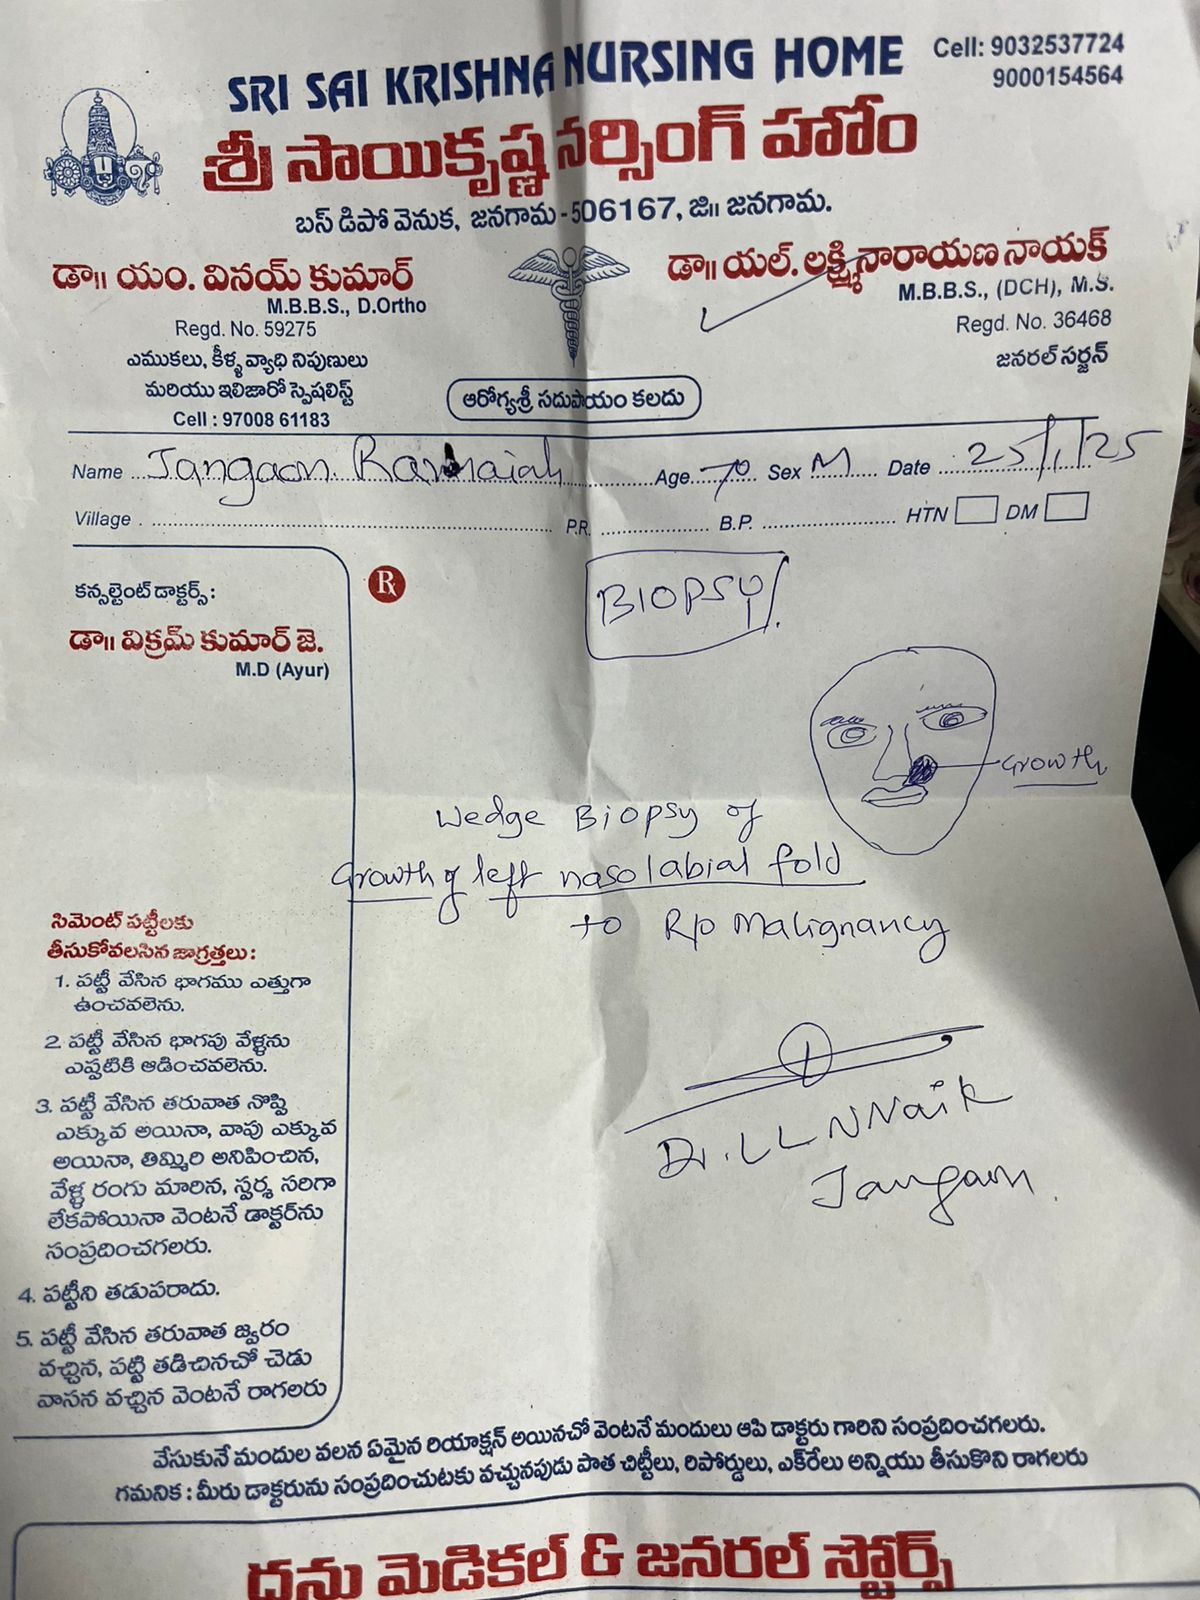 SRI SAI KRISHNA NURSING HOME
Cell: 9032537724
9000154564
శ్రీ సాయికృష్ణ నర్సింగ్ హోం
బస్ డిపో వెనుక, జనగామ-506167, జిఁ జనగామ.
డాఁ యం. వినయ్ కుమార్
M.B.B.S., D.Ortho
Regd. No. 59275
ఎముకలు, కీళ్ళ వ్యాధి నిపుణులు
మరియు ఇలిజారో స్పెషలిస్ట్
Cell : 97008 61183
డాఁ యల్. లక్ష్మినారాయణ నాయక్
M.B.B.S., (DCH), M.S.
Regd. No. 36468
జనరల్ సర్జన్
ఆరోగ్యశ్రీ సదుపాయం కలదు
Name Jangaon Ramaiah Age 70 Sex M Date 25/1/25
Village P.R. B.P. HTN DM
కన్సల్టెంట్ డాక్టర్స్ :
డాఁ విక్రమ్ కుమార్ జె.
M.D (Ayur)
Rx
BIOPSY
Growth
Wedge Biopsy of
Growth of left nasolabial fold
to R/o Malignancy
Dr. L L N Naik
Jangaon.
సిమెంట్ పట్టీలకు
తీసుకోవలసిన జాగ్రత్తలు :
1. పట్టీ వేసిన భాగము ఎత్తుగా
ఉంచవలెను.
2. పట్టీ వేసిన భాగపు వేళ్ళను
ఎప్పటికి ఆడించవలెను.
3. పట్టీ వేసిన తరువాత నొప్పి
ఎక్కువ అయినా, వాపు ఎక్కువ
అయినా, తిమ్మిరి అనిపించిన,
వేళ్ళ రంగు మారిన, స్పర్శ సరిగా
లేకపోయినా వెంటనే డాక్టర్‌ను
సంప్రదించగలరు.
4. పట్టీని తడుపరాదు.
5. పట్టీ వేసిన తరువాత జ్వరం
వచ్చిన, పట్టి తడిచినచో చెడు
వాసన వచ్చిన వెంటనే రాగలరు
వేసుకునే మందుల వలన ఏమైన రియాక్షన్ అయినచో వెంటనే మందులు ఆపి డాక్టరు గారిని సంప్రదించగలరు.
గమనిక : మీరు డాక్టరును సంప్రదించుటకు వచ్చునపుడు పాత చిట్టీలు, రిపోర్డులు, ఎక్‌రేలు అన్నియు తీసుకొని రాగలరు
ధను మెడికల్ & జనరల్ స్టోర్స్